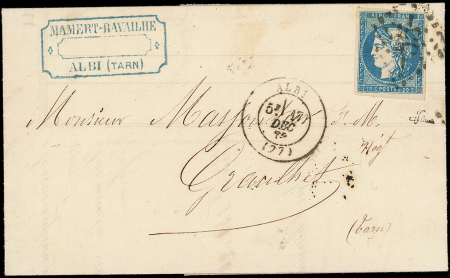 MAMERT-RAVAILHE
ALBI (TARN)
REPUB. FRANC.
20 C. POSTES 20 C.
ALBI
5E
17
DEC
70
(77)
Monsieur
Négt
Graulhet
(Tarn)